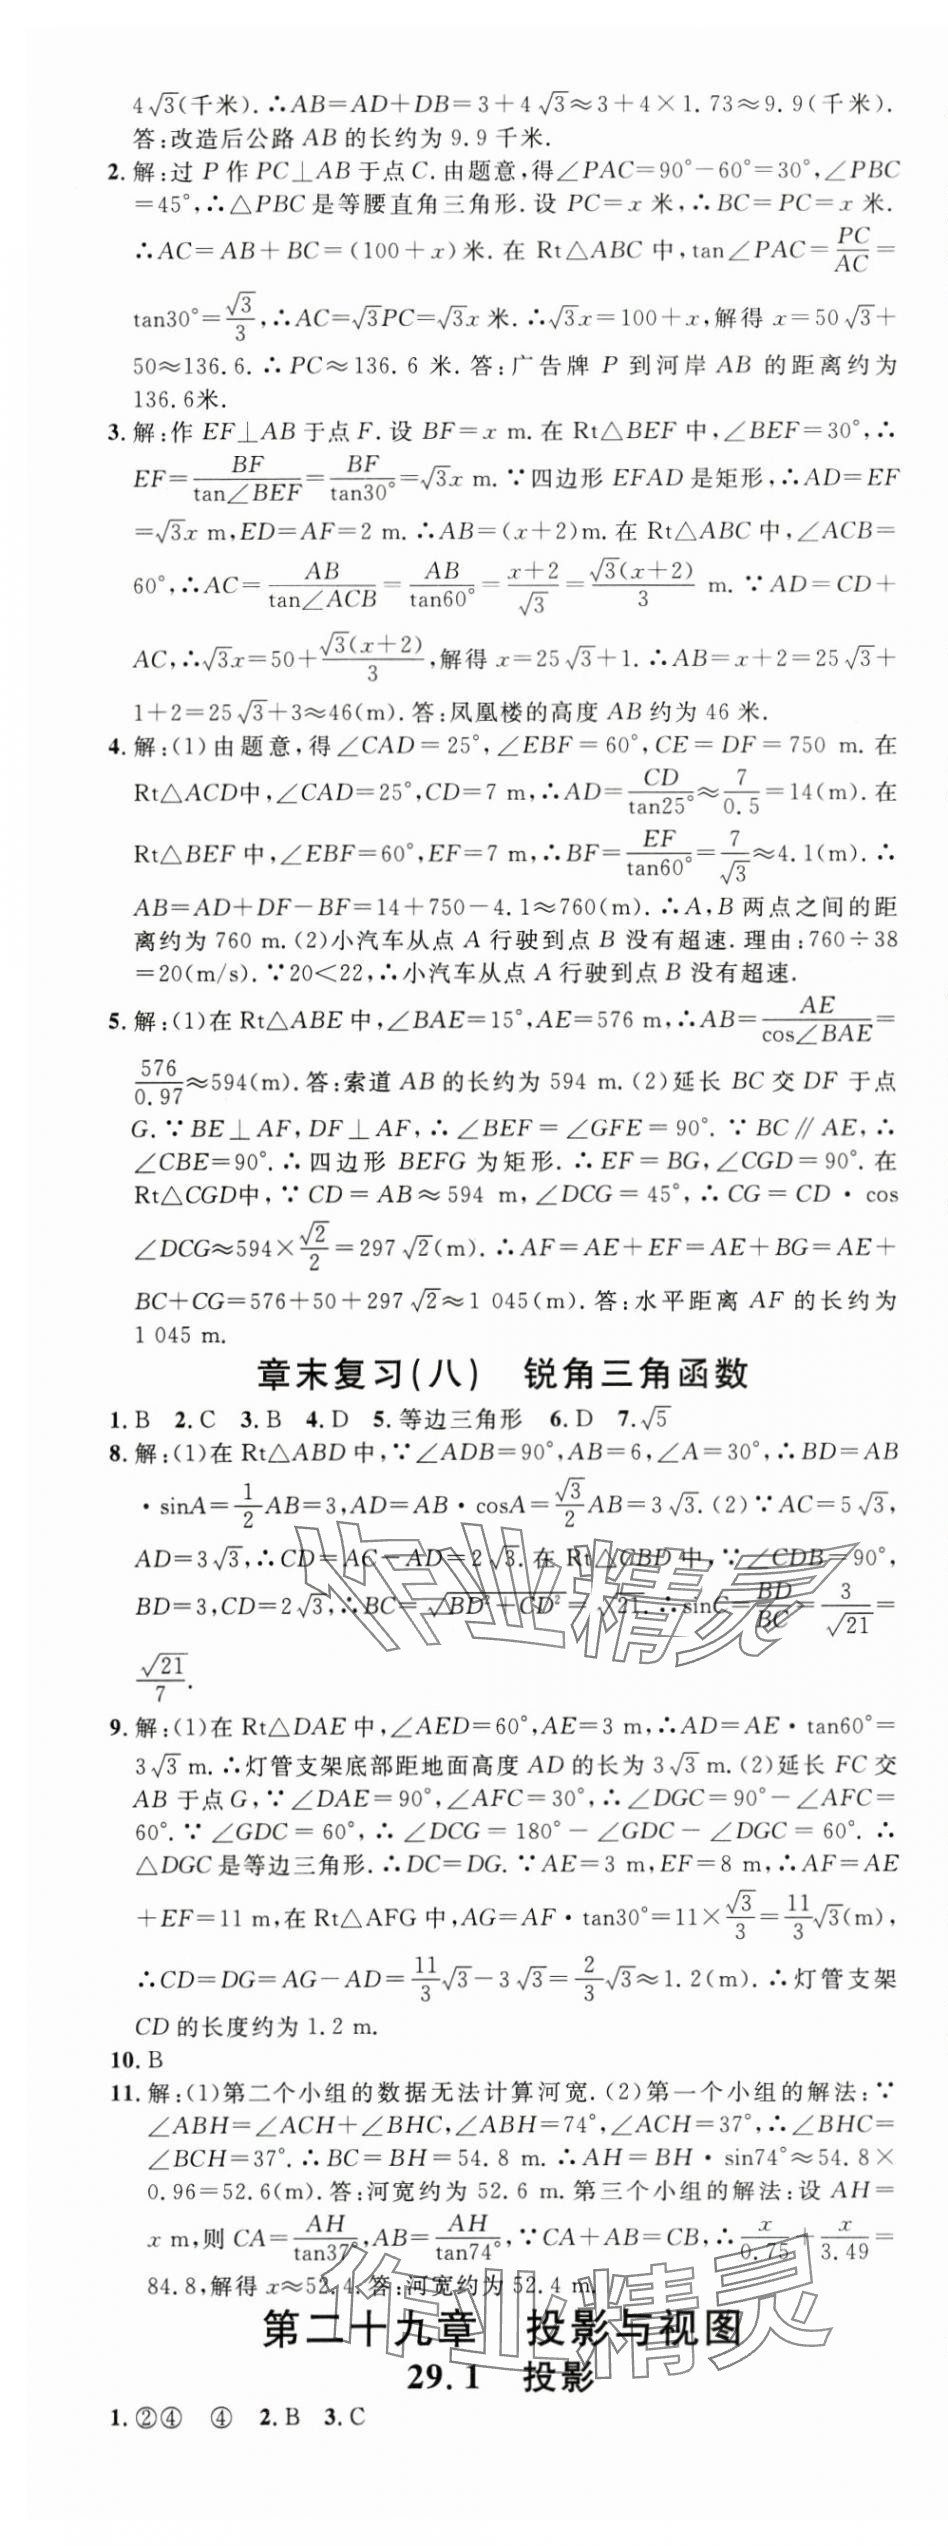 4√3(千米).∴AB=AD+DB=3+4√3≈3+4×1.73≈9.9(千米).
答:改造后公路 AB 的长约为 9.9 千米.
2. 解:过 P 作 PC⊥AB 于点C.由题意,得∠PAC=90°-60°=30°,∠PBC
=45°,∴△PBC 是等腰直角三角形.设 PC=x 米,∴BC=PC=x 米.
∴AC=AB+BC=(100+x)米.在 Rt△ABC 中,tan∠PAC=PC/AC=
tan30°=√3/3,∴AC=√3PC=√3x 米.∴√3x=100+x,解得 x=50√3+
50≈136.6.∴PC≈136.6 米.答:广告牌 P 到河岸 AB 的距离约为
136.6米.
3. 解:作 EF⊥AB 于点 F.设 BF=x m.在 Rt△BEF 中,∠BEF=30°,∴
EF=BF/tan∠BEF=BF/tan30°=√3x m.∵四边形 EFAD 是矩形,∴AD=EF
=√3x m,ED=AF=2 m.∴AB=(x+2)m.在 Rt△ABC 中,∠ACB=
60°,∴AC=AB/tan∠ACB=AB/tan60°=(x+2)/√3=√3(x+2)/3 m.∵AD=CD+
AC,∴√3x=50+√3(x+2)/3,解得 x=25√3+1.∴AB=x+2=25√3+
1+2=25√3+3≈46(m).答:凤凰楼的高度 AB 约为 46 米.
4. 解:(1)由题意,得∠CAD=25°,∠EBF=60°,CE=DF=750 m.在
Rt△ACD中,∠CAD=25°,CD=7 m,∴AD=CD/tan25°≈7/0.5=14(m).在
Rt△BEF 中,∠EBF=60°,EF=7 m,∴BF=EF/tan60°=7/√3≈4.1(m).∴
AB=AD+DF-BF=14+750-4.1≈760(m).∴A,B 两点之间的距
离约为 760 m.(2)小汽车从点 A 行驶到点 B 没有超速.理由:760÷38
=20(m/s).∵20<22,∴小汽车从点 A 行驶到点 B 没有超速.
5. 解:(1)在 Rt△ABE 中,∠BAE=15°,AE=576 m,∴AB=AE/cos∠BAE=
576/0.97≈594(m).答:索道 AB 的长约为 594 m.(2)延长 BC 交 DF 于点
G.∵BE⊥AF,DF⊥AF,∴∠BEF=∠GFE=90°.∵BC∥AE,∴
∠CBE=90°.∴四边形 BEFG 为矩形.∴EF=BG,∠CGD=90°.在
Rt△CGD中,∵CD=AB≈594 m,∠DCG=45°,∴CG=CD·cos
∠DCG≈594×√2/2=297√2(m).∴AF=AE+EF=AE+BG=AE+
BC+CG=576+50+297√2≈1 045(m).答:水平距离 AF 的长约为
1 045 m.
章末复习(八) 锐角三角函数
1. B 2. C 3. B 4. D 5. 等边三角形 6. D 7. √5
8. 解:(1)在 Rt△ABD 中,∵∠ADB=90°,AB=6,∠A=30°,∴BD=AB
·sinA=1/2AB=3,AD=AB·cosA=√3/2AB=3√3.(2)∵AC=5√3,
AD=3√3,∴CD=AC-AD=2√3.在 Rt△CBD 中,∵∠CDB=90°,
BD=3,CD=2√3,∴BC=√(BD²+CD²)=√21.∴sinC=BD/BC=3/√21=
√21/7.
9. 解:(1)在 Rt△DAE 中,∠AED=60°,AE=3 m,∴AD=AE·tan60°=
3√3 m.∴灯管支架底部距地面高度 AD 的长为 3√3 m.(2)延长 FC 交
AB 于点 G,∵∠DAE=90°,∠AFC=30°,∴∠DGC=90°-∠AFC=
60°.∵∠GDC=60°,∴∠DCG=180°-∠GDC-∠DGC=60°.∴
△DGC 是等边三角形.∴DC=DG.∵AE=3 m,EF=8 m,∴AF=AE
+EF=11 m,在 Rt△AFG 中,AG=AF·tan30°=11×√3/3=11/3√3(m),
∴CD=DG=AG-AD=11/3√3-3√3=2/3√3≈1.2(m).∴灯管支架
CD 的长度约为 1.2 m.
10. B
11. 解:(1)第二个小组的数据无法计算河宽.(2)第一个小组的解法:∵
∠ABH=∠ACH+∠BHC,∠ABH=74°,∠ACH=37°,∴∠BHC=
∠BCH=37°.∴BC=BH=54.8 m.∴AH=BH·sin74°≈54.8×
0.96=52.6(m).答:河宽约为 52.6 m.第三个小组的解法:设 AH=
x m,则 CA=AH/tan37°,AB=AH/tan74°,∵CA+AB=CB,∴x/0.75+x/3.49=
84.8,解得 x≈52.4.答:河宽约为 52.4 m.
第二十九章 投影与视图
29.1 投影
1. ②④ ④ 2. B 3. C
作业精灵
作业精灵